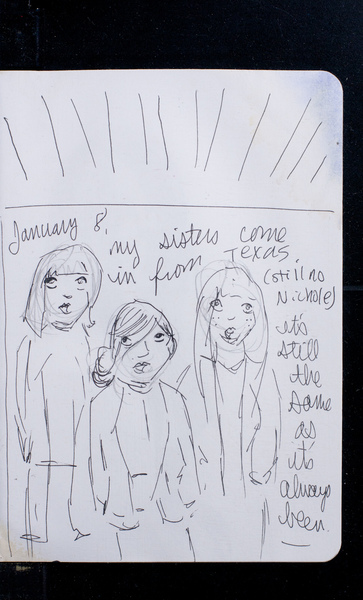 January 8,
my sisters come
in from Texas.
(still no
Nichole)
it's
still
the
same
as
it's
always
been.